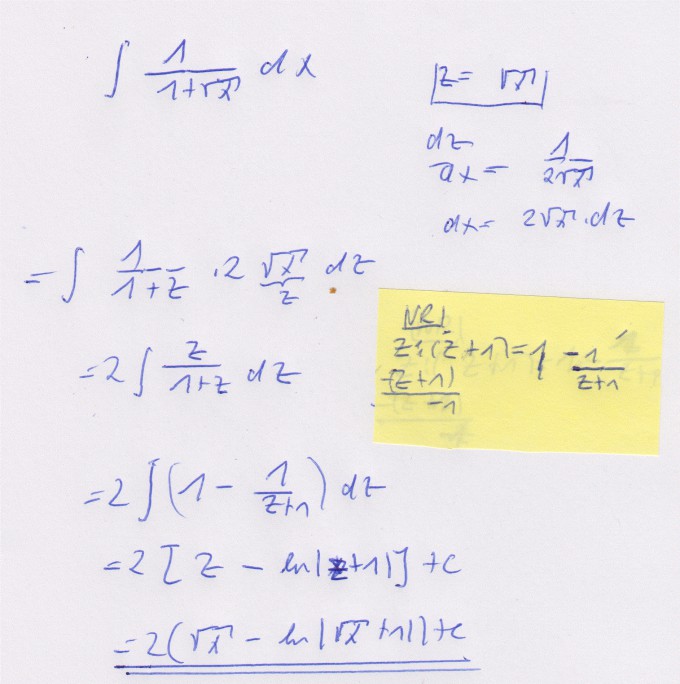 ∫ 1/(1+√x) dx
|z = √x|
dz/dx = 1/(2√x)
dx = 2√x · dz
= ∫ 1/(1+z) · 2 √x/z dz
NR!
z : (z+1) = 1 -1/(z+1)
-(z+1)
-1
= 2 ∫ z/(1+z) dz
= 2 ∫ (1 - 1/(z+1)) dz
= 2 [z - ln|z+1|] + c
= 2(√x - ln|√x+1|) + c